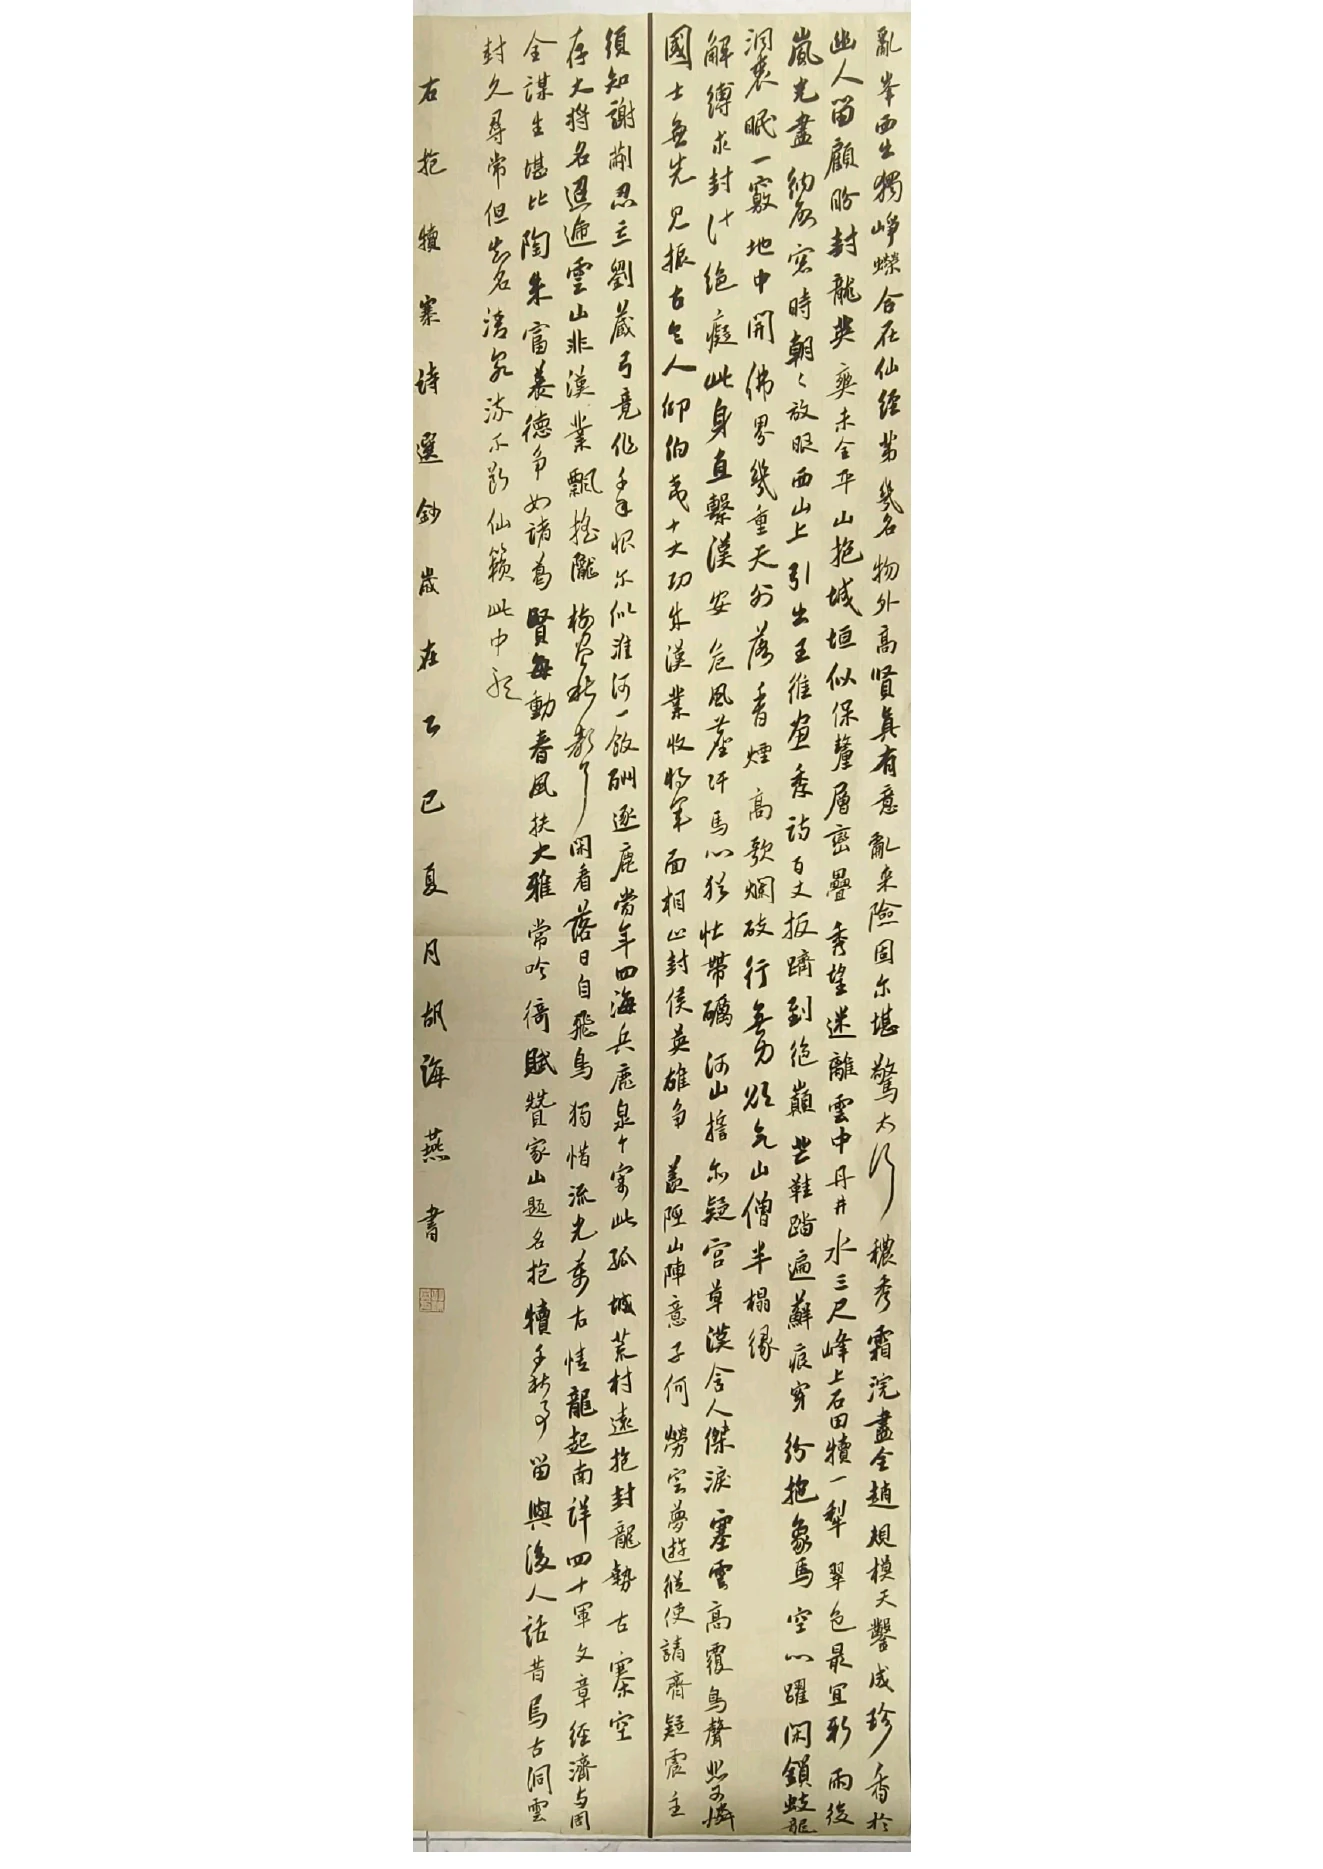 亂峯西出獨崢嶸合在仙經第幾名物外高賢真有意亂來險固尔堪驚太行穠秀霜浣盡全趙規模天鑿成珍香於
幽人留顧盼封龍與爽未全平山抱城垣似保釐層巒疊秀望迷離雲中丹井水三尺峰上石田犢一犁翠色最宜新雨後
嵐光盡納夜窓時朝〻放眼西山上引出王維畫秀詩百丈扳躋到絶巔芒鞋踏遍蘚痕穿紛抱象馬空心躍閑鎖蛟龍
洞裏眠一竅地中開佛界幾重天外落香煙高歌爛破行無力欲乞山僧半榻緣
解縛求封計絶癡此身直繫漢安危風塵汗馬心猶壯帶礪河山誓尔疑宮草漠含人傑淚塞雲高覆鳥聲悲可憐
國士無先見振古令人仰伯夷十大功成漢業收將軍面相止封侯英雄爭羨陘山陣意子何勞雲夢遊縱使請齊疑震主
須知謝蒯忍忘劉藏弓竟作千年恨尔似淮河一飯酬逐鹿當年四海兵鹿泉中寄此孤城荒村遠抱封龍勢古寨空
存大將名迢遞雲山非漢業飄搖隴樹畫秋聲行閑看落日自飛鳥獨惜流光萬古情龍起南詳四十軍文章經濟与周
全謀生堪比陶朱富養德爭如諸葛賢每動春風扶大雅常吟衙賦贊家山題名抱犢千秋事留與後人話昔馬古洞雲
封久尋常但知名清泉流不斷仙籟此中聽
右抱犢寨詩選鈔歲在乙巳夏月胡海燕書